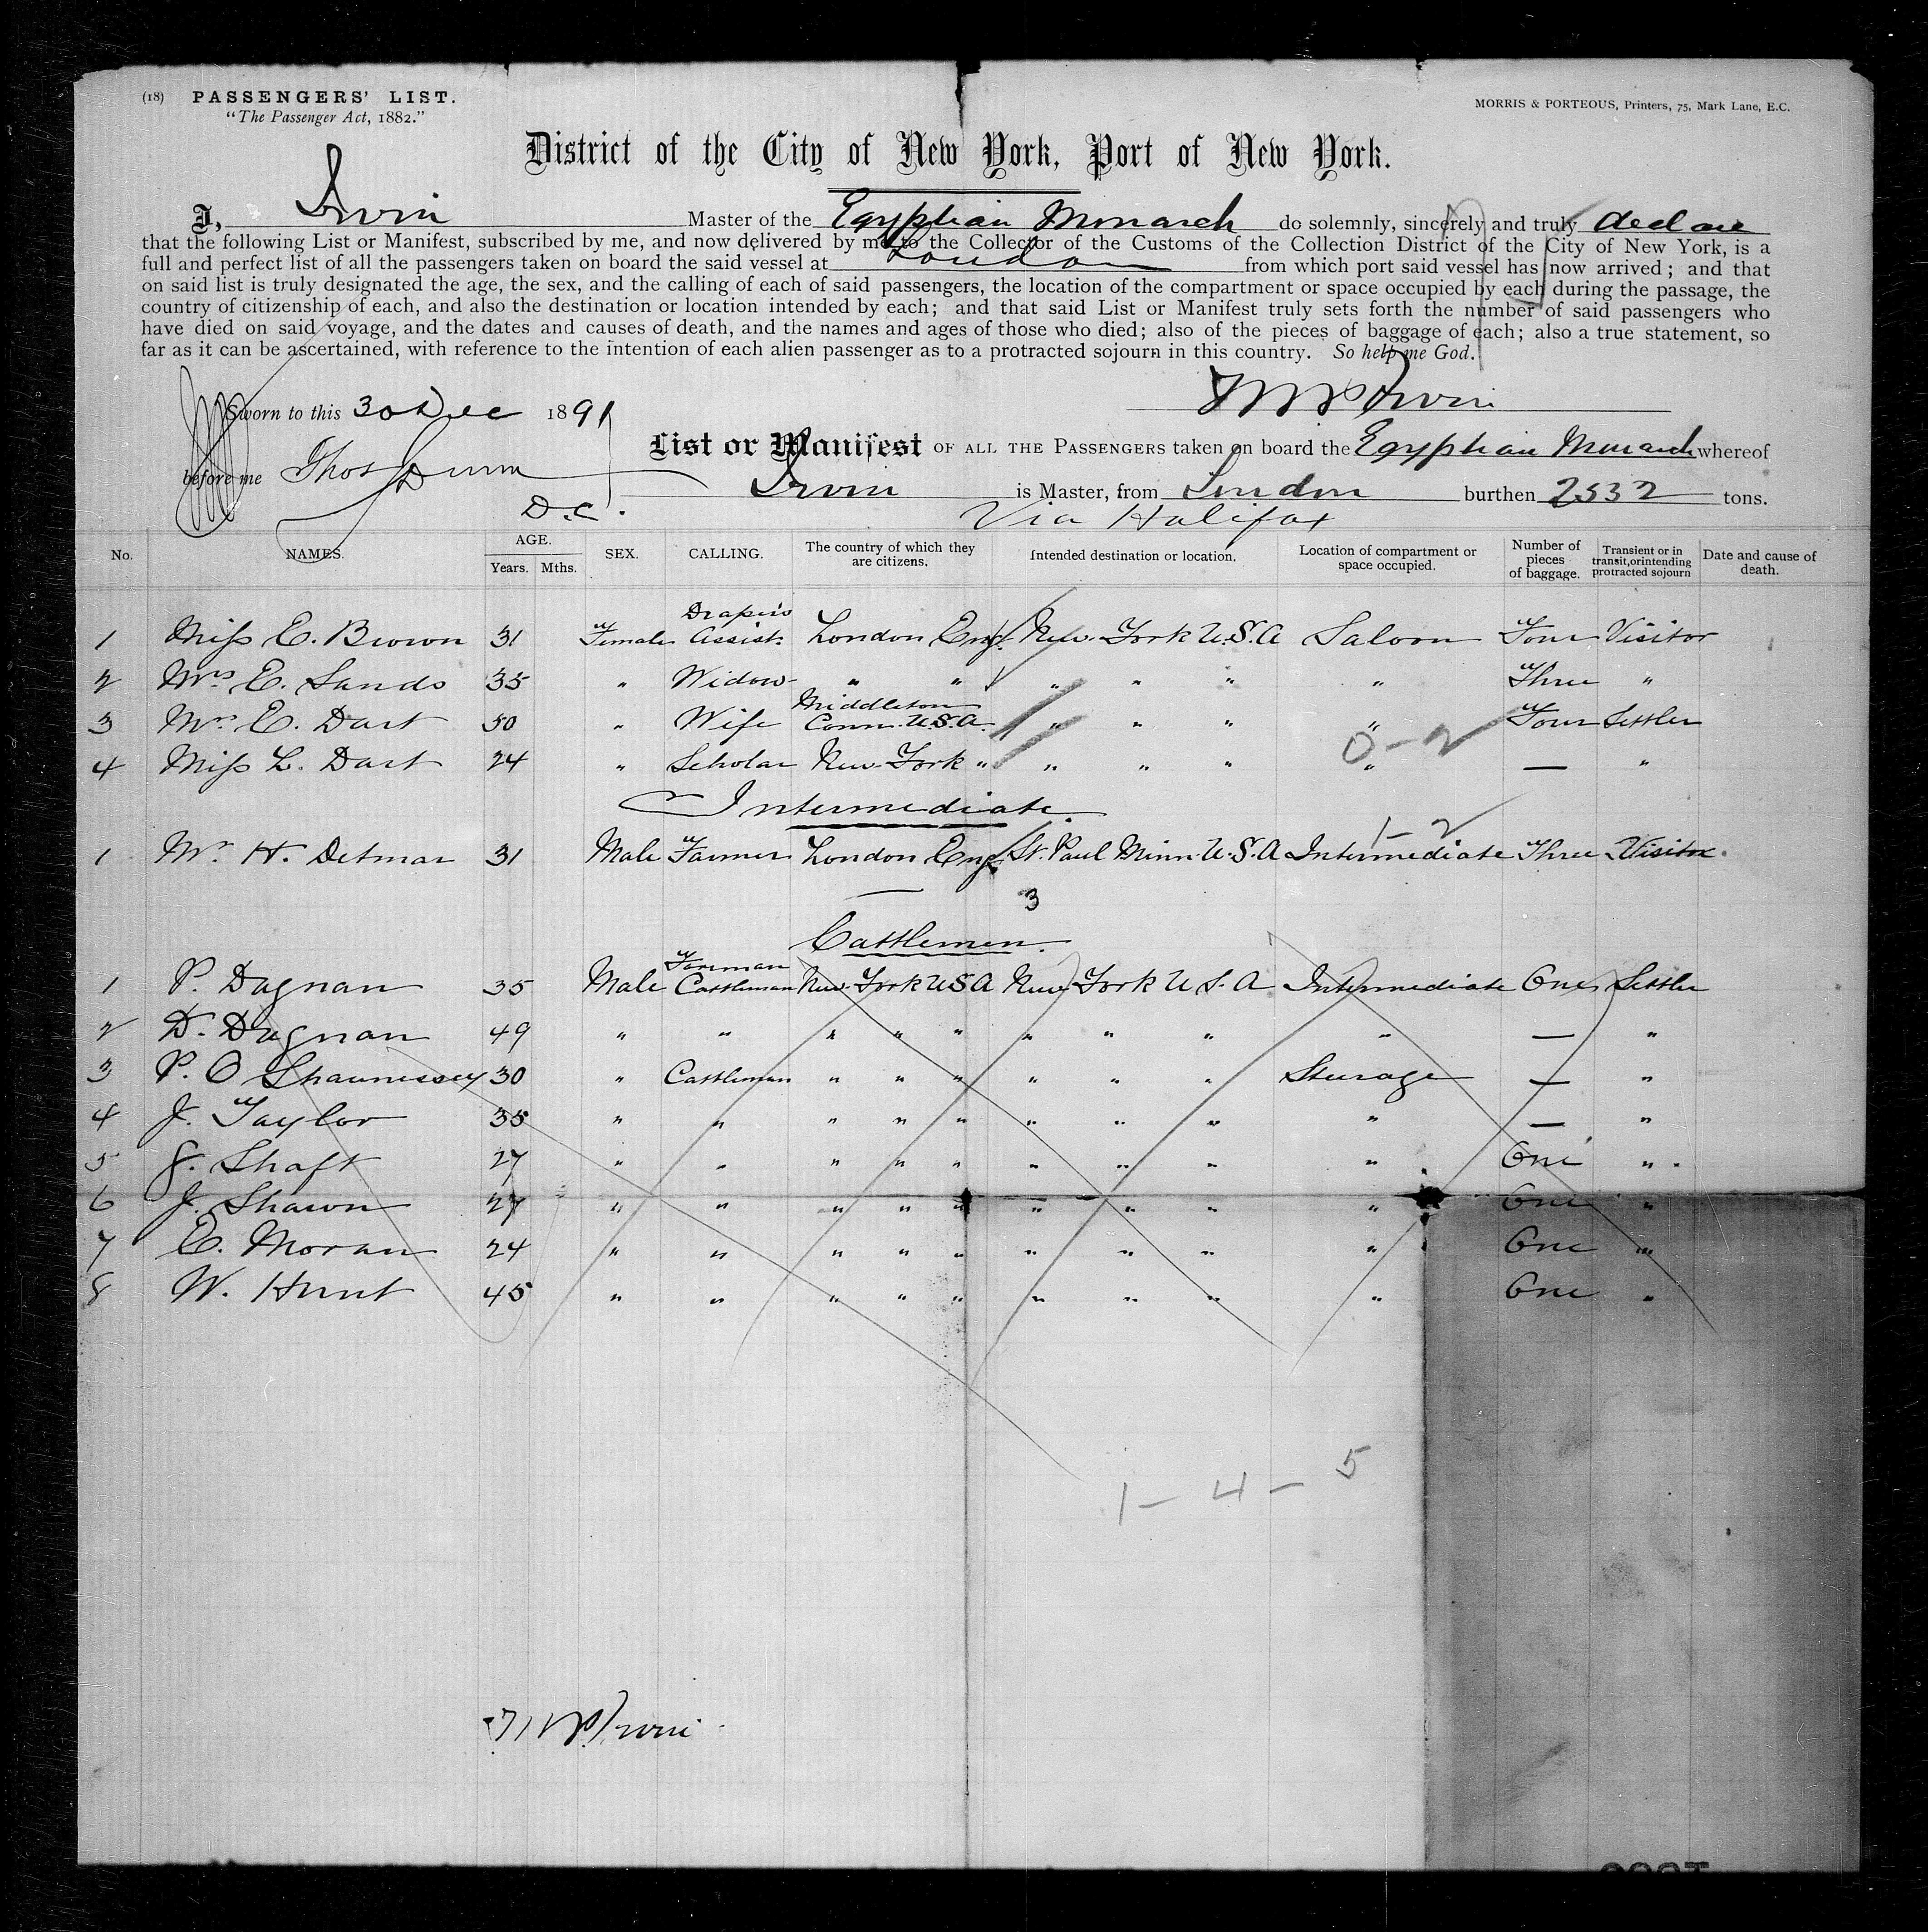 (18) PASSENGERS' LIST.
"The Passenger Act, 1882."
MORRIS & PORTEOUS, Printers, 75, Mark Lane, E.C.
District of the City of New York, Port of New York.
I, Irvin Master of the Egyptian Monarch do solemnly, sincerely and truly declare
that the following List or Manifest, subscribed by me, and now delivered by me to the Collector of the Customs of the Collection District of the City of New York, is a
full and perfect list of all the passengers taken on board the said vessel at London from which port said vessel has now arrived; and that
on said list is truly designated the age, the sex, and the calling of each of said passengers, the location of the compartment or space occupied by each during the passage, the
country of citizenship of each, and also the destination or location intended by each; and that said List or Manifest truly sets forth the number of said passengers who
have died on said voyage, and the dates and causes of death, and the names and ages of those who died; also of the pieces of baggage of each; also a true statement, so
far as it can be ascertained, with reference to the intention of each alien passenger as to a protracted sojourn in this country. So help me God.
Irvin
Sworn to this 30 Dec 1891
List or Manifest OF ALL THE PASSENGERS taken on board the Egyptian Monarch whereof
before me Thos Dunn
Irvin is Master, from London burthen 2532 tons.
D.C.
Via Halifax
No. NAMES. AGE. Years. Mths. SEX. CALLING. The country of which they are citizens. Intended destination or location. Location of compartment or space occupied. Number of pieces of baggage. Transient or in transit, or intending protracted sojourn Date and cause of death.
1 Miss E. Brown 31 Female Draper's Assist. London Eng. New York U.S.A Saloon Four Visitor
2 Mrs E. Sands 35 " Widow " " " " " " Three "
3 Mrs E. Dart 50 " Wife Middleton Conn. U.S.A. " " " " Four Settler
0-2
4 Miss L. Dart 24 " Scholar New York " " " " " — "
Intermediate
1-2
1 Mr H. Detmar 31 Male Farmer London Eng. St. Paul Minn. U.S.A Intermediate Three Visitor
3
Cattlemen.
1 P. Dagnan 35 Male Foreman Cattleman New York USA New York U S. A Intermediate One Settler
2 D. Dagnan 49 " " " " " " " " " — "
3 P. O Shaunessey 30 " Cattleman " " " " " " Steerage — "
4 J. Taylor 35 " " " " " " " " " — "
5 J. Shaft 27 " " " " " " " " " One "
6 J. Shawn 27 " " " " " " " " " One "
7 E. Moran 24 " " " " " " " " " One "
8 W. Hunt 45 " " " " " " " " " One "
1-4-5
Irvin